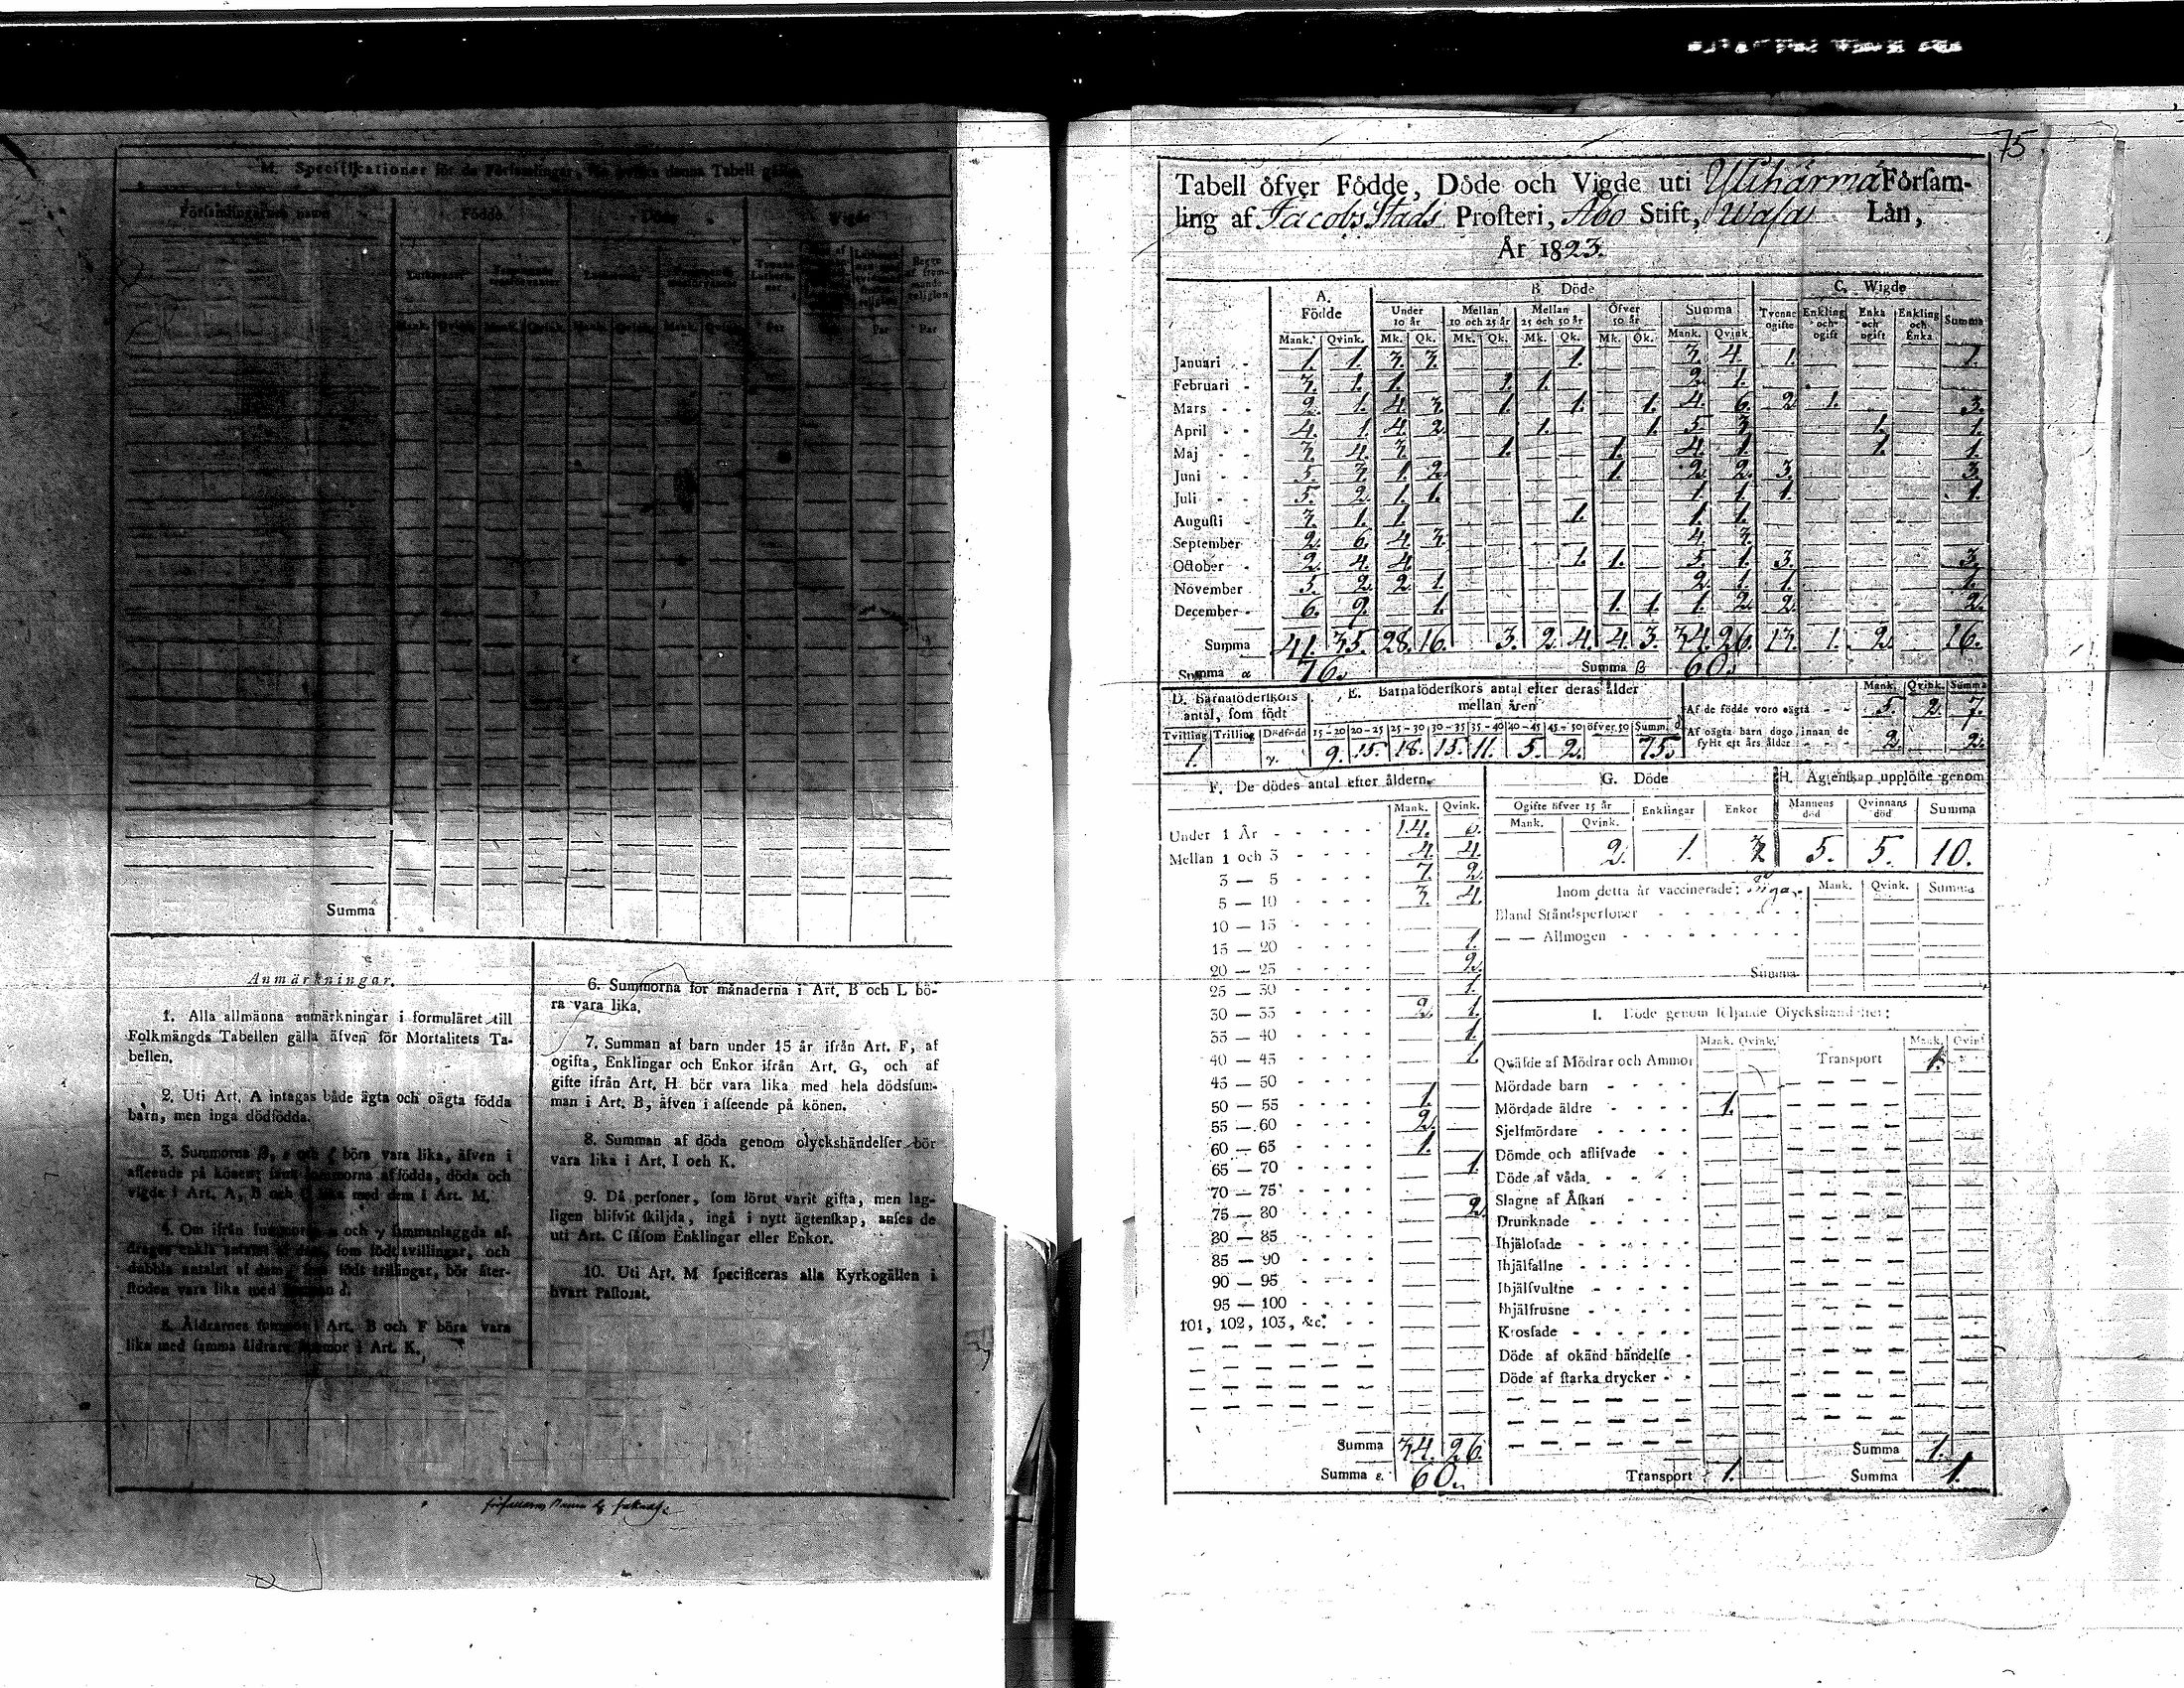 M. Specificationer för de Församlingar,
Församlingarnes namn
Födde
Döde
Wigde
Mank. Qvink. Mank. Qvink. Mank. Qvink. Mank. Qvink. Par Par Par
Summa
Anmärkningar.
1. Alla allmänna anmärkningar i formuläret till
Folkmängds Tabellen gälla äfven för Mortalitets Ta-
bellen.
2. Uti Art. A intagas både ägta och oägta födda
barn, men inga dödfödda.
3. Summorna β, ε och ζ böra vara lika, äfven i
afseende på könen; samt summorna af födda, döda och
vigda i Art. A, B och C lika med dem i Art. M.
4. Om ifrån summorna α och γ sammanlaggda af-
drages enkla antalet af dem, som födt tvillingar, och
dubbla antalet af dem, som födt trillingar, bör åter-
stoden vara lika med summan δ.
5. Åldrarnes summor i Art. B och F böra vara
lika med samma åldrars summor i Art. K.
6. Summorna för månaderna i Art. B och L bö-
ra vara lika.
7. Summan af barn under 15 år ifrån Art. F, af
ogifta, Enklingar och Enkor ifrån Art. G, och af
gifte ifrån Art. H bör vara lika med hela dödssum-
man i Art. B, äfven i afseende på könen.
8. Summan af döda genom olyckshändelser bör
vara lika i Art. I och K.
9. Då personer, som förut varit gifta, men lag-
ligen blifvit skiljda, ingå i nytt ägtenskap, anses de
uti Art. C såsom Enklingar eller Enkor.
10. Uti Art. M specificeras alla Kyrkogällen i
hvart Pastorat.
75
Tabell öfver Födde, Döde och Vigde uti Ylihärmä Försam-
ling af Jacobs Stads Prosteri, Åbo Stift, Wasa Län,
År 1823.
A. Födde
B. Döde
C. Wigde
Under 10 år Mellan 10 och 25 år Mellan 25 och 50 år Öfver 50 år Summa Tvenne ogifte Enkling och ogift Enka och ogift Enkling och Enka Summa
Mank. Qvink. Mk. Qk. Mk. Qk. Mk. Qk. Mk. Qk. Mank. Qvink.
Januari 1. 1. 3. 3. 1. 3. 4. 1. 1.
Februari 3. 1. 1. 1. 1. 2. 1.
Mars 2. 1. 4. 3. 1. 1. 1. 4. 6. 2. 1. 3.
April 4. 1. 4. 2. 1. 1. 5. 3. 1. 1.
Maj 3. 4. 3. 1. 1. 4. 1. 1. 1.
Juni 5. 3. 1. 2. 1. 2. 2. 3. 3.
Juli 5. 2. 1. 1. 1. 1. 1. 1.
Augusti 3. 1. 1. 1. 1. 1.
September 2. 6. 4. 3. 4. 3.
October 2. 4. 4. 1. 1. 5. 1. 3. 3.
November 5. 2. 2. 1. 2. 1. 1. 1.
December 6. 9. 1. 1. 1. 1. 2. 2. 2.
Summa 41. 35. 28. 16. 3. 2. 4. 4. 3. 34. 26. 13. 1. 2. 16.
Summa α 76. Summa β 60.
D. Barnaföderskors antal, som födt
Tvilling Trilling Dödfödd
1. γ.
E. Barnaföderskors antal efter deras ålder mellan åren
15-20 20-25 25-30 30-35 35-40 40-45 45-50 öfver 50 Summ. δ
9. 15. 18. 15. 11. 5. 2. 75.
Mank. Qvink. Summa
Af de födde voro oägta 5. 2. 7.
Af oägta barn dogo, innan de
fyllt ett års ålder 2. 2.
F. De dödes antal efter åldern.
Mank. Qvink.
Under 1 År 14. 6.
Mellan 1 och 3 4. 4.
3 — 5 7. 2.
5 — 10 3. 4.
10 — 15
15 — 20 1.
20 — 25 2.
25 — 30 1.
30 — 35 2. 1.
35 — 40 1.
40 — 45 1.
45 — 50
50 — 55 1.
55 — 60 2.
60 — 65 1.
65 — 70 1.
70 — 75
75 — 80 2.
80 — 85
85 — 90
90 — 95
95 — 100
101, 102, 103, &c.
Summa 34. 26.
Summa ε. 60.
G. Döde
Ogifte öfver 15 år Enklingar Enkor
Mank. Qvink.
2. 1. 3.
H. Ägtenskap upplöste genom
Mannens död Qvinnans död Summa
5. 5. 10.
Inom detta år vaccinerade: Inga. Mank. Qvink. Summa
Bland Ståndspersoner
— — Allmogen
Summa
I. Döde genom följande Olyckshändelser:
Mank. Qvink. Mank. Qvink.
Qväfde af Mödrar och Ammor Transport 1.
Mördade barn
Mördade äldre 1.
Sjelfmördare
Dömde och aflifvade
Döde af våda
Slagne af Åskan
Drunknade
Ihjälosade
Ihjälfallne
Ihjälsvultne
Ihjälfrusne
Krossade
Döde af okänd händelse
Döde af starka drycker
Summa 1.
Transport 1. Summa 1.